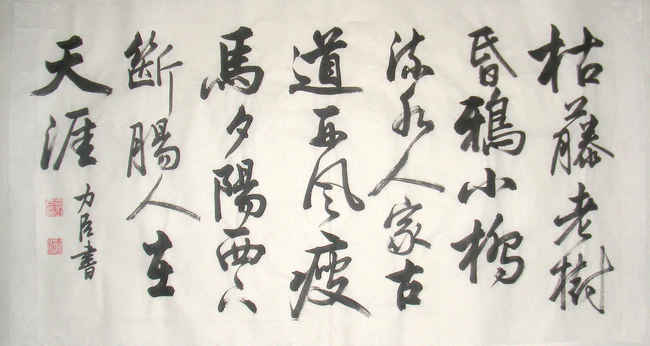 枯藤老樹
昏鴉小橋
流水人家古
道西風瘦
馬夕陽西下
斷腸人在
天涯
力臣書